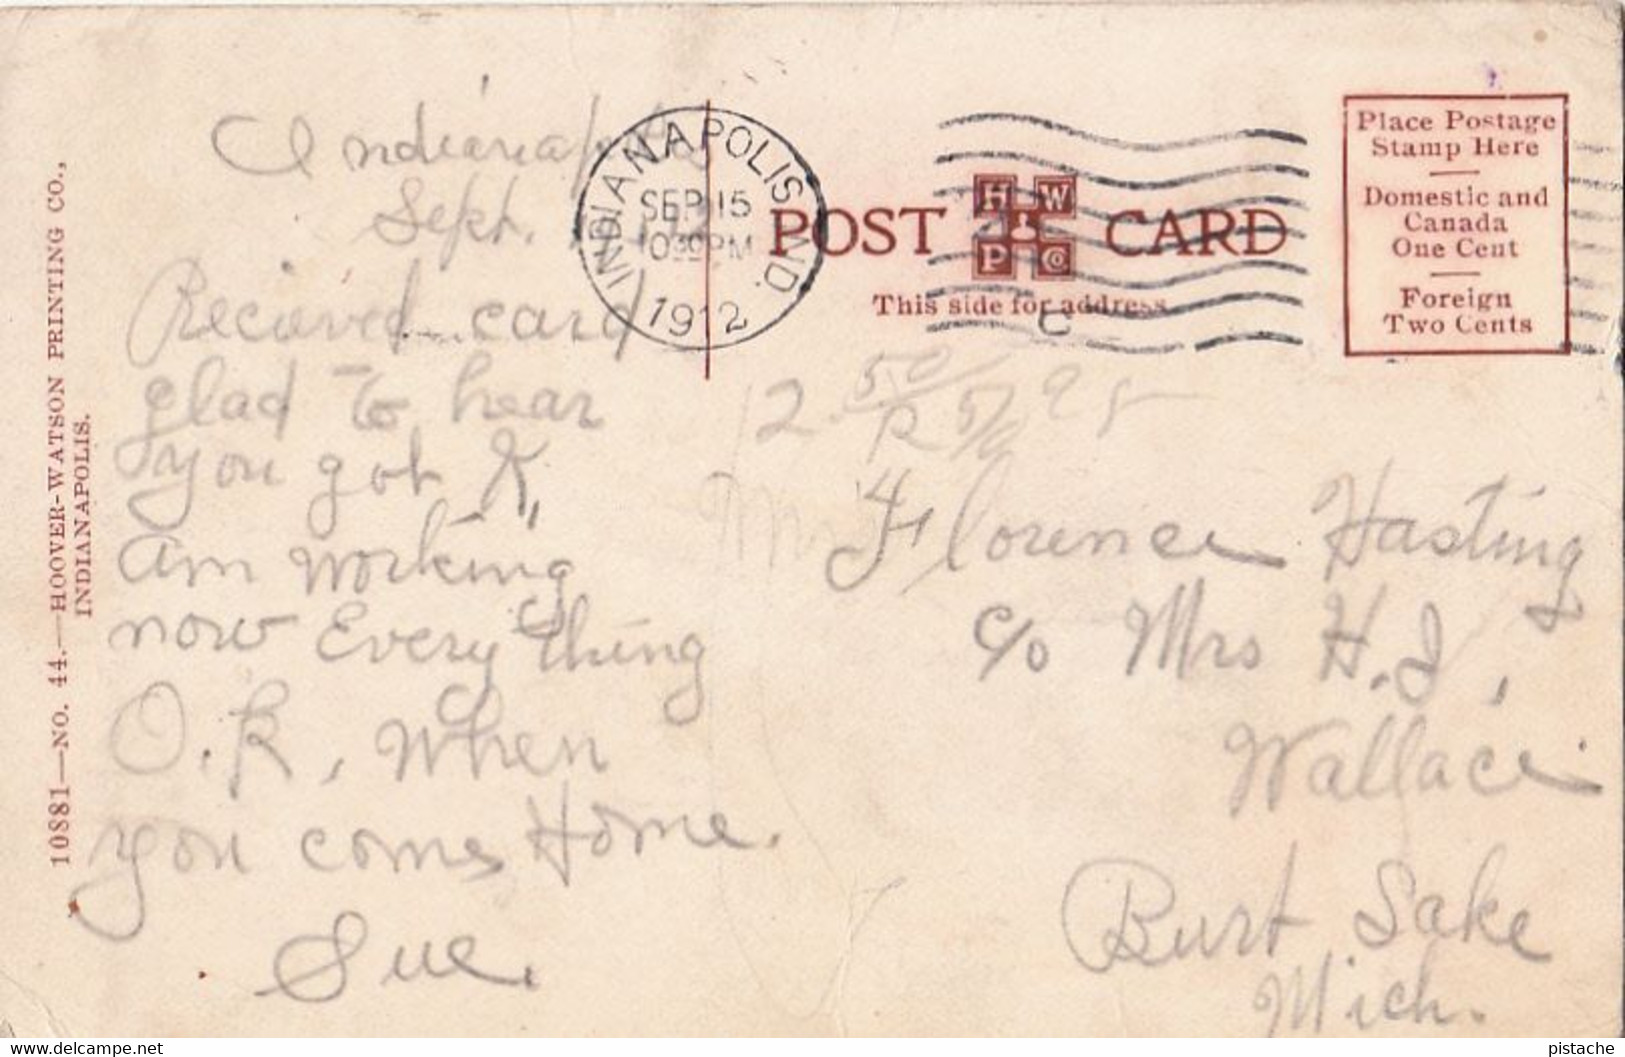 10881—NO. 44.—HOOVER-WATSON PRINTING CO.,
INDIANAPOLIS.
Indianapolis
Sept.
Recieved card
glad to hear
you got
am working
now Everything
O.K, When
you come Home.
Sue.
INDIANAPOLIS IND.
SEP 15
1030 PM
1912
POST CARD
H W
P Co
This side for address
Place Postage
Stamp Here
Domestic and
Canada
One Cent
Foreign
Two Cents
Florence Hasting
c/o Mrs H.J,
Wallace
Burt Lake
Mich.
www.delcampe.net
pistache